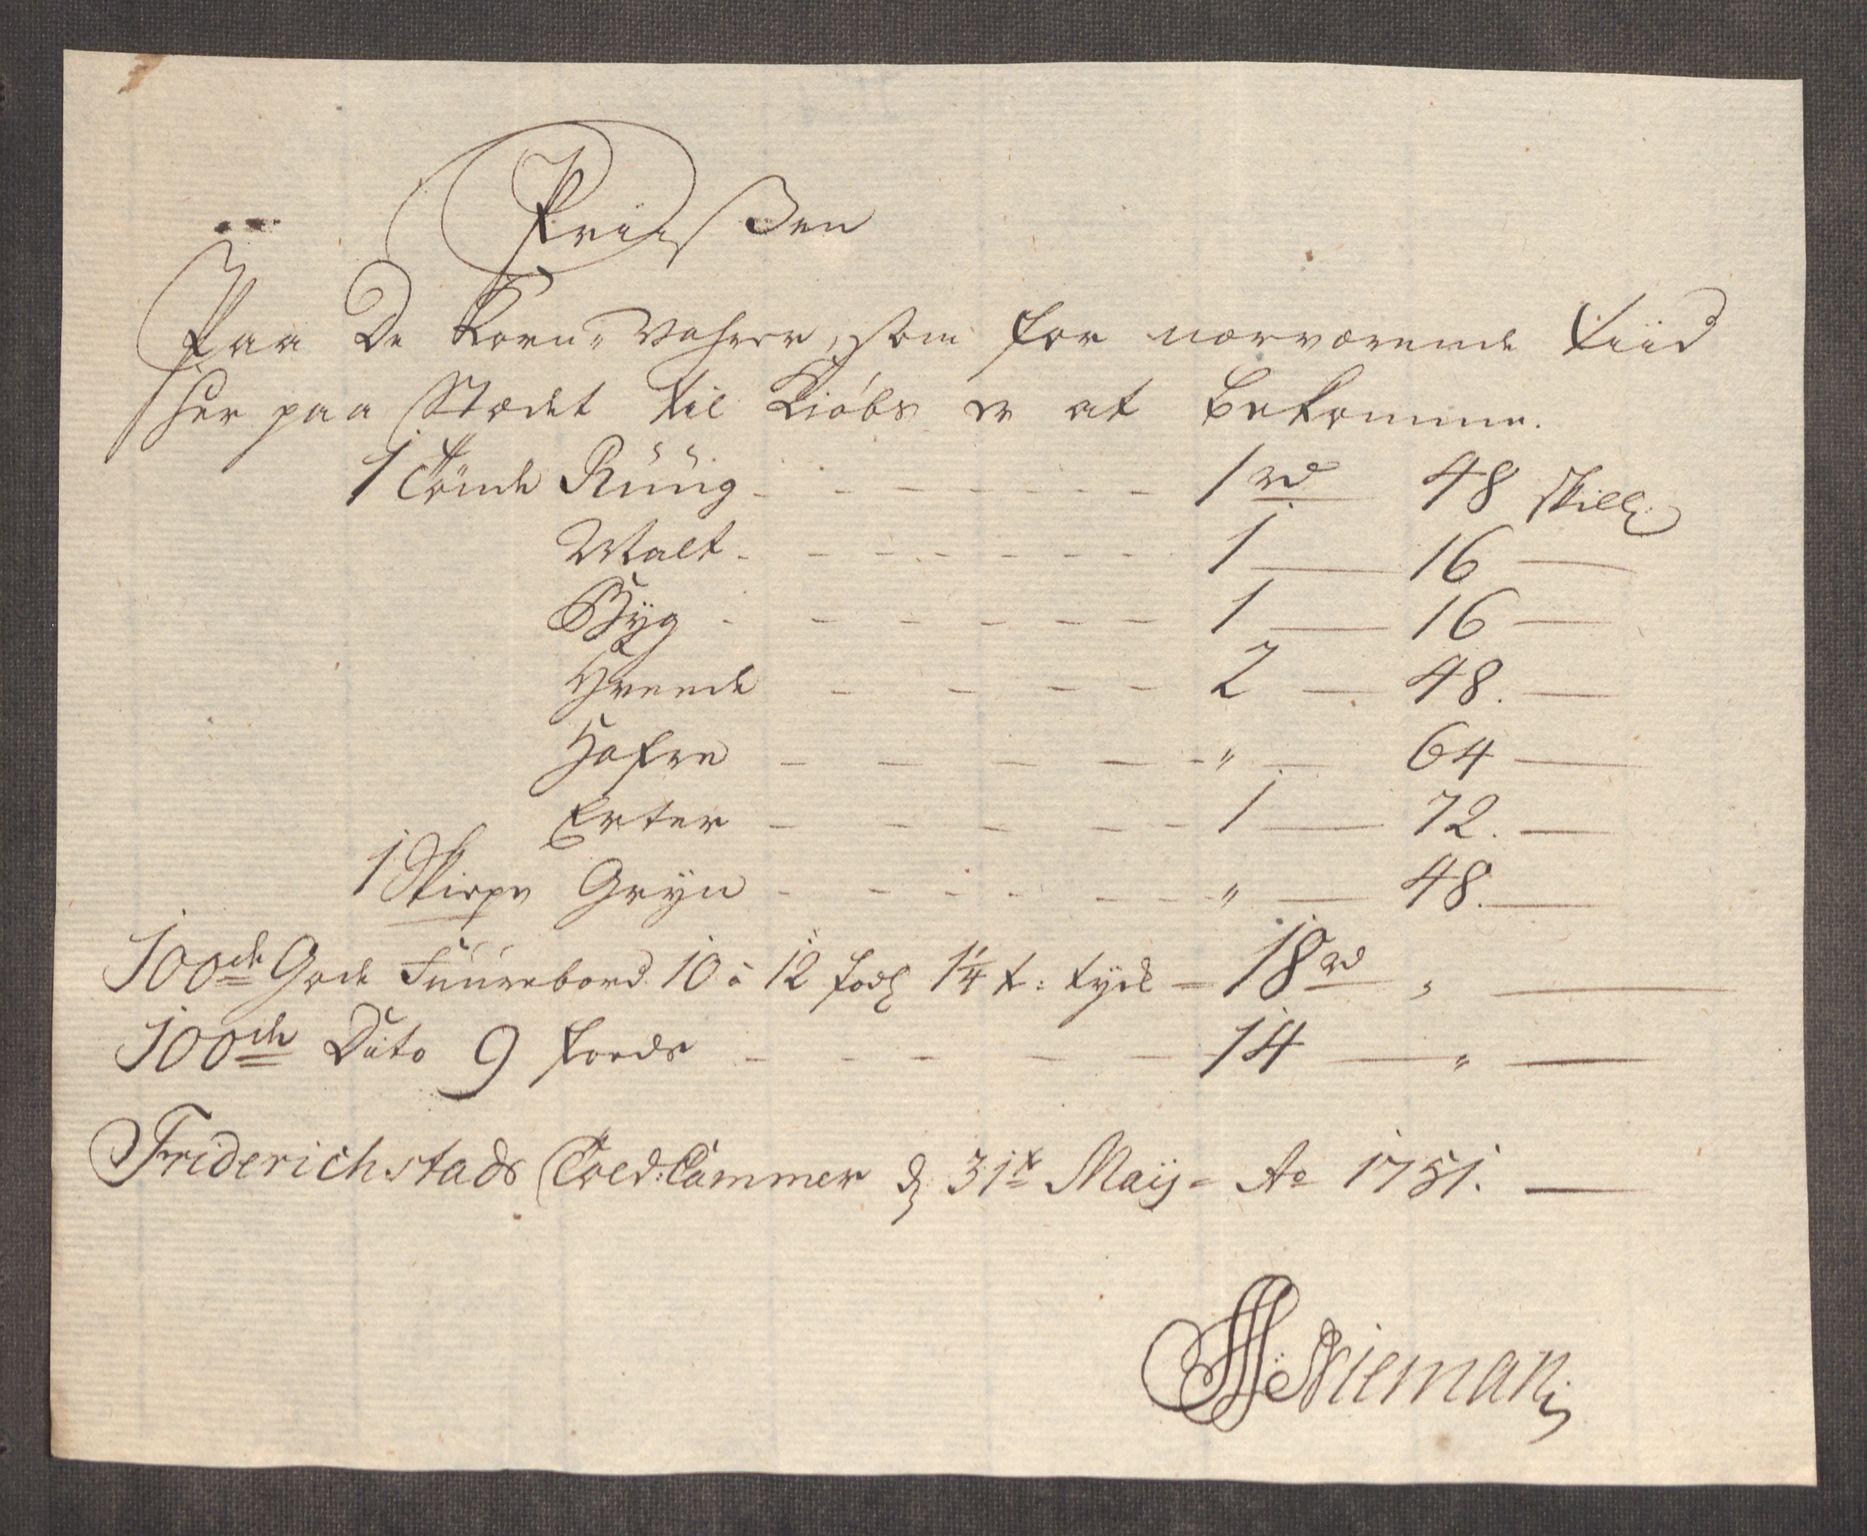 Priisen
Paa De Korn-Vahrer, som for nærværende tiid
her paa Stædet til Kiøbs er at bekomme.
1 Tønde Rüüg - - - - - - - 1 rd 48 skill:
Malt - - - - - - - 1 — 16 —
Byg - - - - - - 1 — 16 —
Hveede - - - - 2 — 48. —
Hafre - - - - - " — 64 —
Erter - - - - - 1 — 72. —
1 Skieppe Gryn - - - - - - " — 48. —
100de Gode Fuurebord 10 à 12 fods 1¼ t: tyck - 18 rd " —
100de Dito 9 foeds - - - - - 14 — " —
Friderichstads Told:Cammer d 31te Maij - Ao 1751. —
Nieman